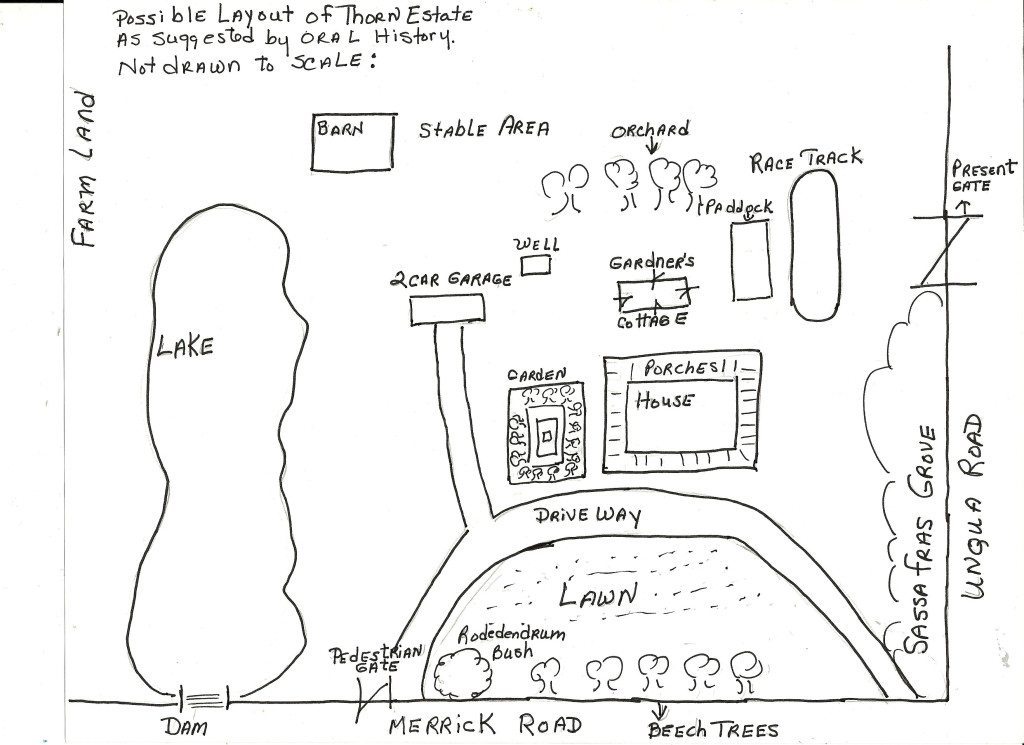 Possible Layout of Thorn Estate
As Suggested by ORAL History.
Not drawn to SCALE:
FARM LAND
BARN
STABLE AREA
ORCHARD
RACE TRACK
PRESENT
GATE
PADDOCK
WELL
GARDNER'S
COTTAGE
2 CAR GARAGE
LAKE
GARDEN
PORCHES
HOUSE
DRIVEWAY
LAWN
SASSAFRAS GROVE
UNQUA ROAD
Rodedendrum
Bush
PEDESTRIAN
GATE
DAM
MERRICK ROAD
BEECH TREES